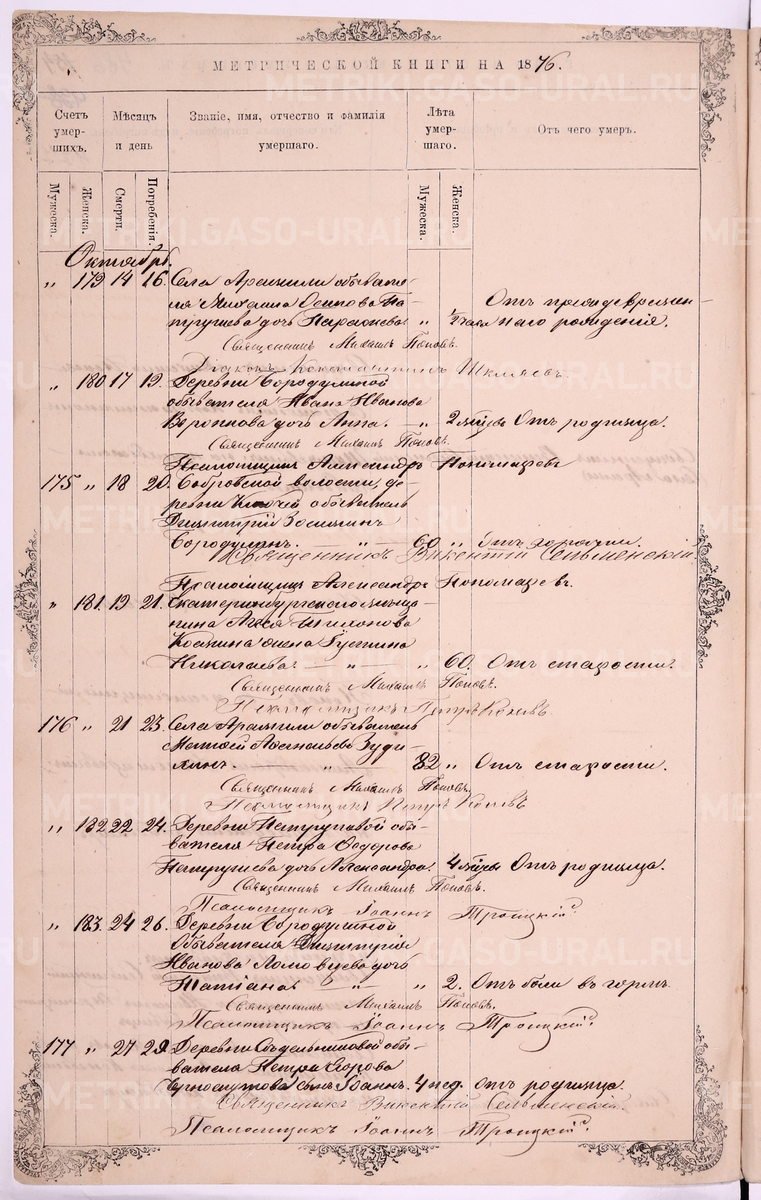 МЕТРИЧЕСКОЙ КНИГИ НА 1876.
Счетъ умер-шихъ.
Мѣсяцъ и день
Званіе, имя, отчество и фамилія умершаго.
Лѣта умер-шаго.
Отъ чего умеръ.
Мужеска.
Женска.
Смерти.
Погребенія.
Мужеска.
Женска.
Октябрь.
„ 179 14 16. Села Арамили обывате-
ля Михаила Осипова Па-
трушева дочь „ 1/2 часа Отъ преждевремен-
наго рожденія.
Священникъ Михаилъ Поповъ.
Діаконъ Константинъ Шкляевъ.
„ 180 17 19. Деревни Бородулиной
обывателя Ивана Иванова
Воронкова дочь Анна. — „ 2 мѣсяца Отъ родимца.
Священникъ Михаилъ Поповъ.
Псаломщикъ Александръ Пономаревъ
175 „ 18 20. Бобровской волости, де-
ревни Ключей обыватель
Димитрій Зосиминъ
Бородулинъ. — „ — 60 „ отъ горячки.
Священникъ Викентій Сельменскій.
Псаломщикъ Александръ Пономаревъ.
„ 181 19 21. Екатеринбургскаго мѣща-
нина
жена Густина
Николаева — „ — „ 60. Отъ старости.
Священникъ Михаилъ Поповъ.
Псаломщикъ Петръ
176 „ 21 23. Села Арамили обыватель
Матвей Афанасьевъ
— „ — 82 „ Отъ старости.
Священникъ Михаилъ Поповъ.
Псаломщикъ Петръ
„ 182 22 24. Деревни Патрушевой обы-
вателя Петра Ѳедорова
Патрушева дочь Александра. 4 мѣсяцы Отъ родимца.
Священникъ Михаилъ Поповъ.
Псаломщикъ Іоаннъ Троицкій.
„ 183. 24 26. Деревни Бородулиной
Обывателя Димитрія
Иванова Ломовцева дочь
Татіана — „ — „ 2. Отъ боли въ горлѣ.
Священникъ Михаилъ Поповъ.
Псаломщикъ Іоаннъ Троицкій.
177 „ 27 29. Деревни Сѣдельниковой обы-
вателя Петра Егорова
сынъ Іоаннъ. 4 нед. отъ родимца.
Священникъ Викентій Сельменскій.
Псаломщикъ Іоаннъ Троицкій.
METRIKI.GASO-URAL.RU